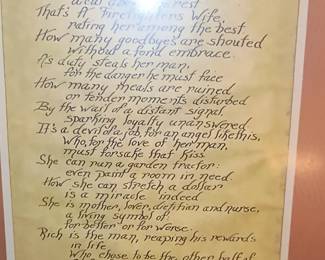 rest
That's A Firefighters Wife,
rating her among the best
How many goodbyes are shouted
without a fond embrace.
As duty steals her man,
for the danger he must face
How many meals are ruined
or tender moments disturbed
By the wail of a distant signal,
sparking loyally unanswered
It's a devil of a job, for an angel like this,
Who, for the love of her man,
must forsake that kiss
She can run a garden tractor:
even paint a room in need.
How she can stretch a dollar
is a miracle indeed
She is mother, lover, dietitian and nurse,
a living symbol of:
for better or for worse.
Rich is the man, reaping his rewards
in life,
Who chose to be the other half of